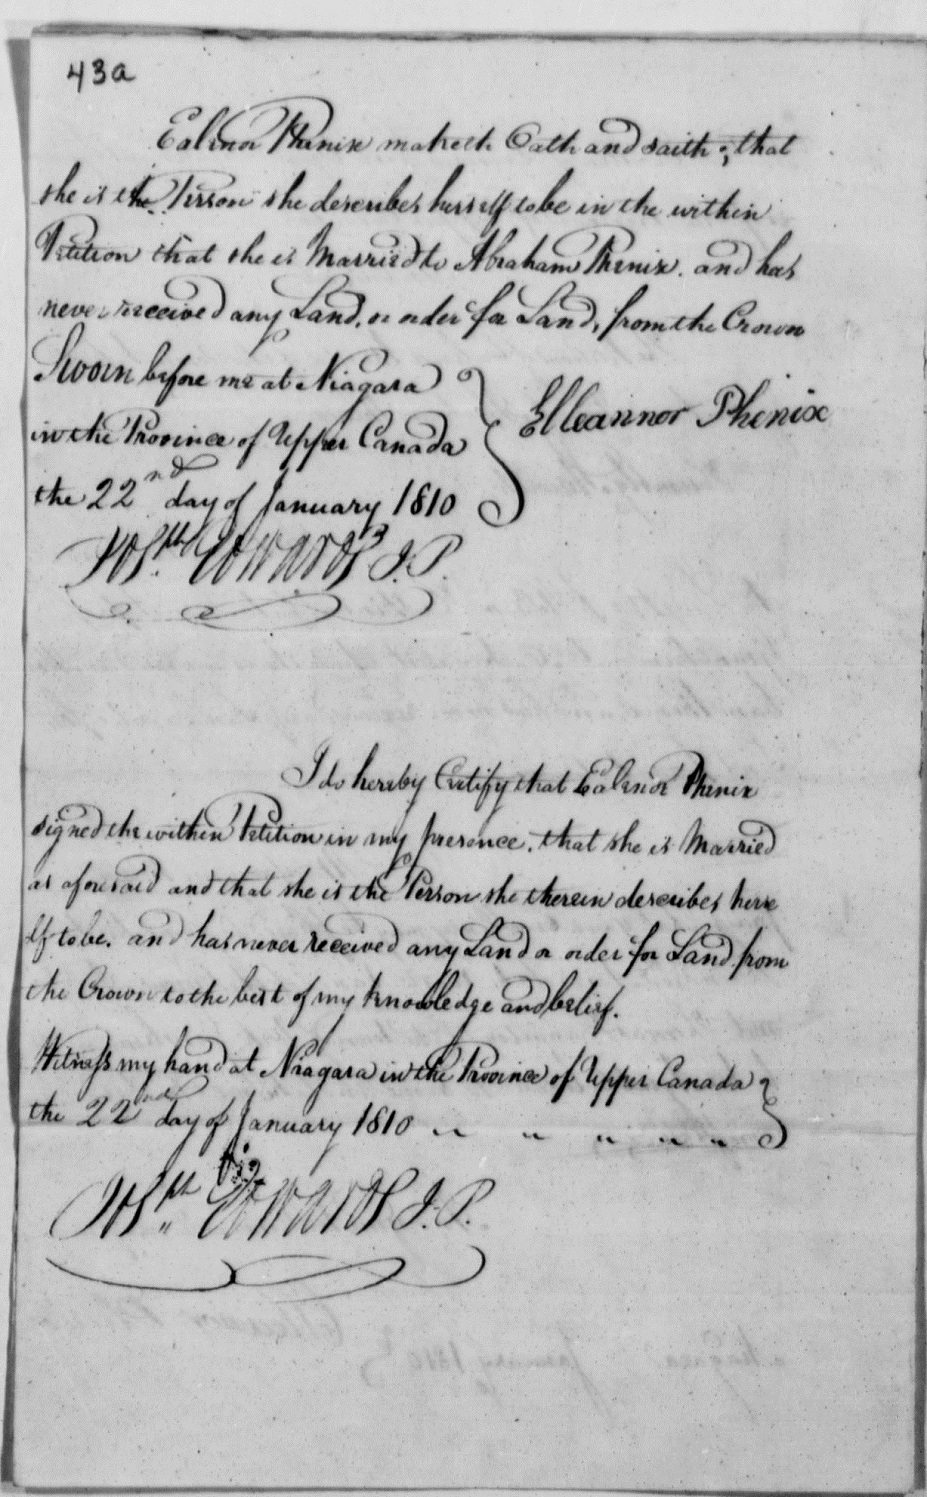 43a
Ealenor Phenix maketh Oath and saith, that
she is the Person she describes herself to be in the within
Petition that she is Married to Abraham Phenix. and has
never received any Land, or order for Land, from the Crown
Sworn before me at Niagara
in the Province of Upper Canada
the 22nd day of January 1810
Elleannor Phenix
Josph Edwards J.P.
I do hereby Certify that Ealenor Phenix
signed the within Petition in my presence. that she is Married
as aforesaid and that she is the Person she therein describes herse
lf to be. and has never received any Land or order for Land from
the Crown to the best of my knowledge and belief.
Witness my hand at Niagara in the Province of Upper Canada
the 22nd day of January 1810 " " " " "
Josph Edwards J.P.